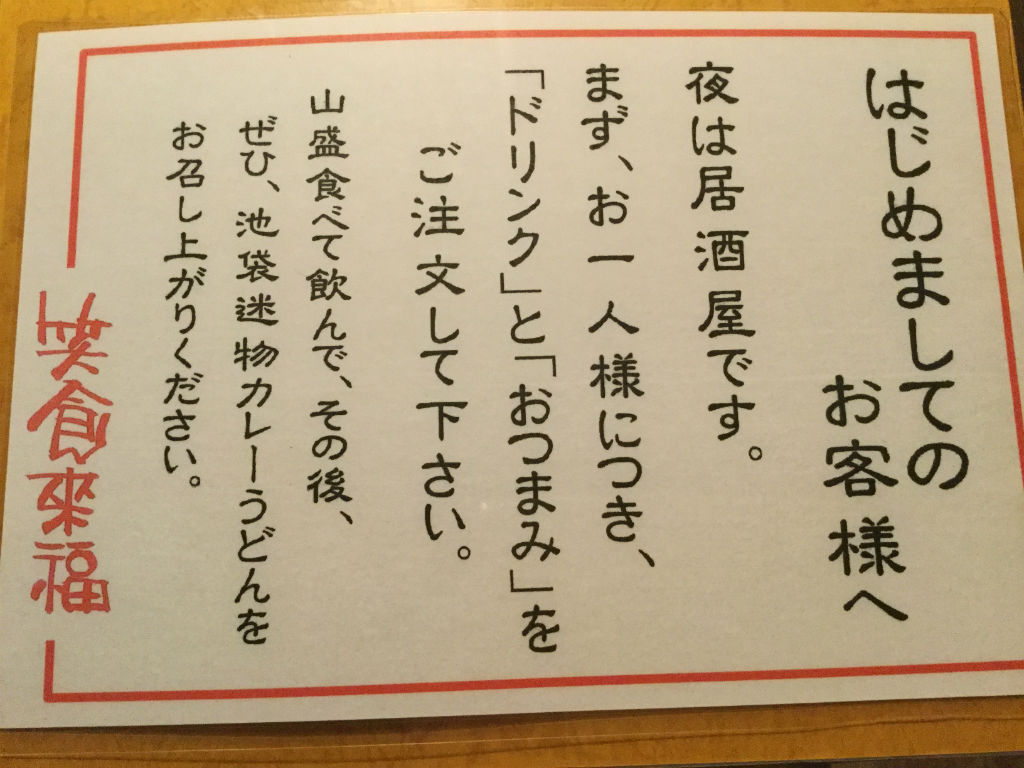 はじめましての
お客様へ
夜は居酒屋です。
まず、お一人様につき、
「ドリンク」と「おつまみ」を
ご注文して下さい。
山盛食べて飲んで、その後、
ぜひ、池袋迷物カレーうどんを
お召し上がりください。
笑食來福